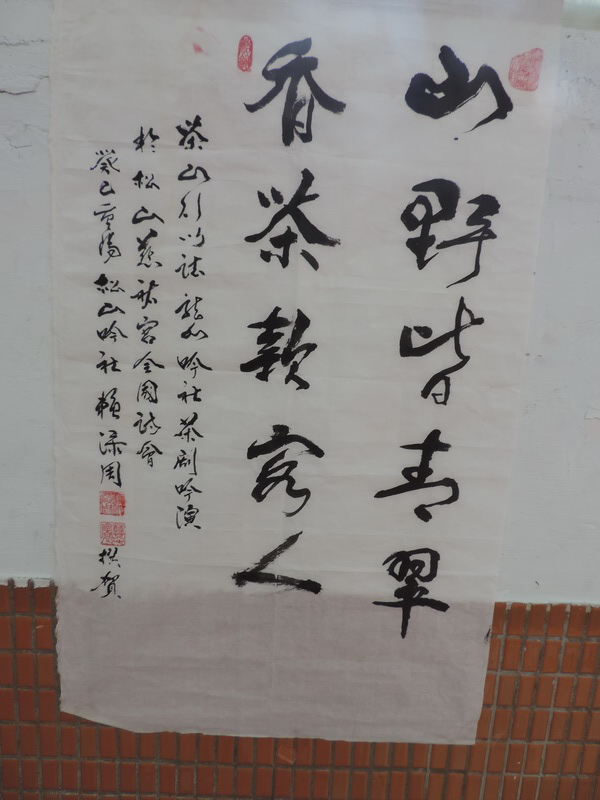 山野皆青翠
香茶款客人
茶山行以誌龍山吟社茶劇吟演
於松山慈祐宮全國詩會
癸巳重陽松山吟社賴添周
撰賀